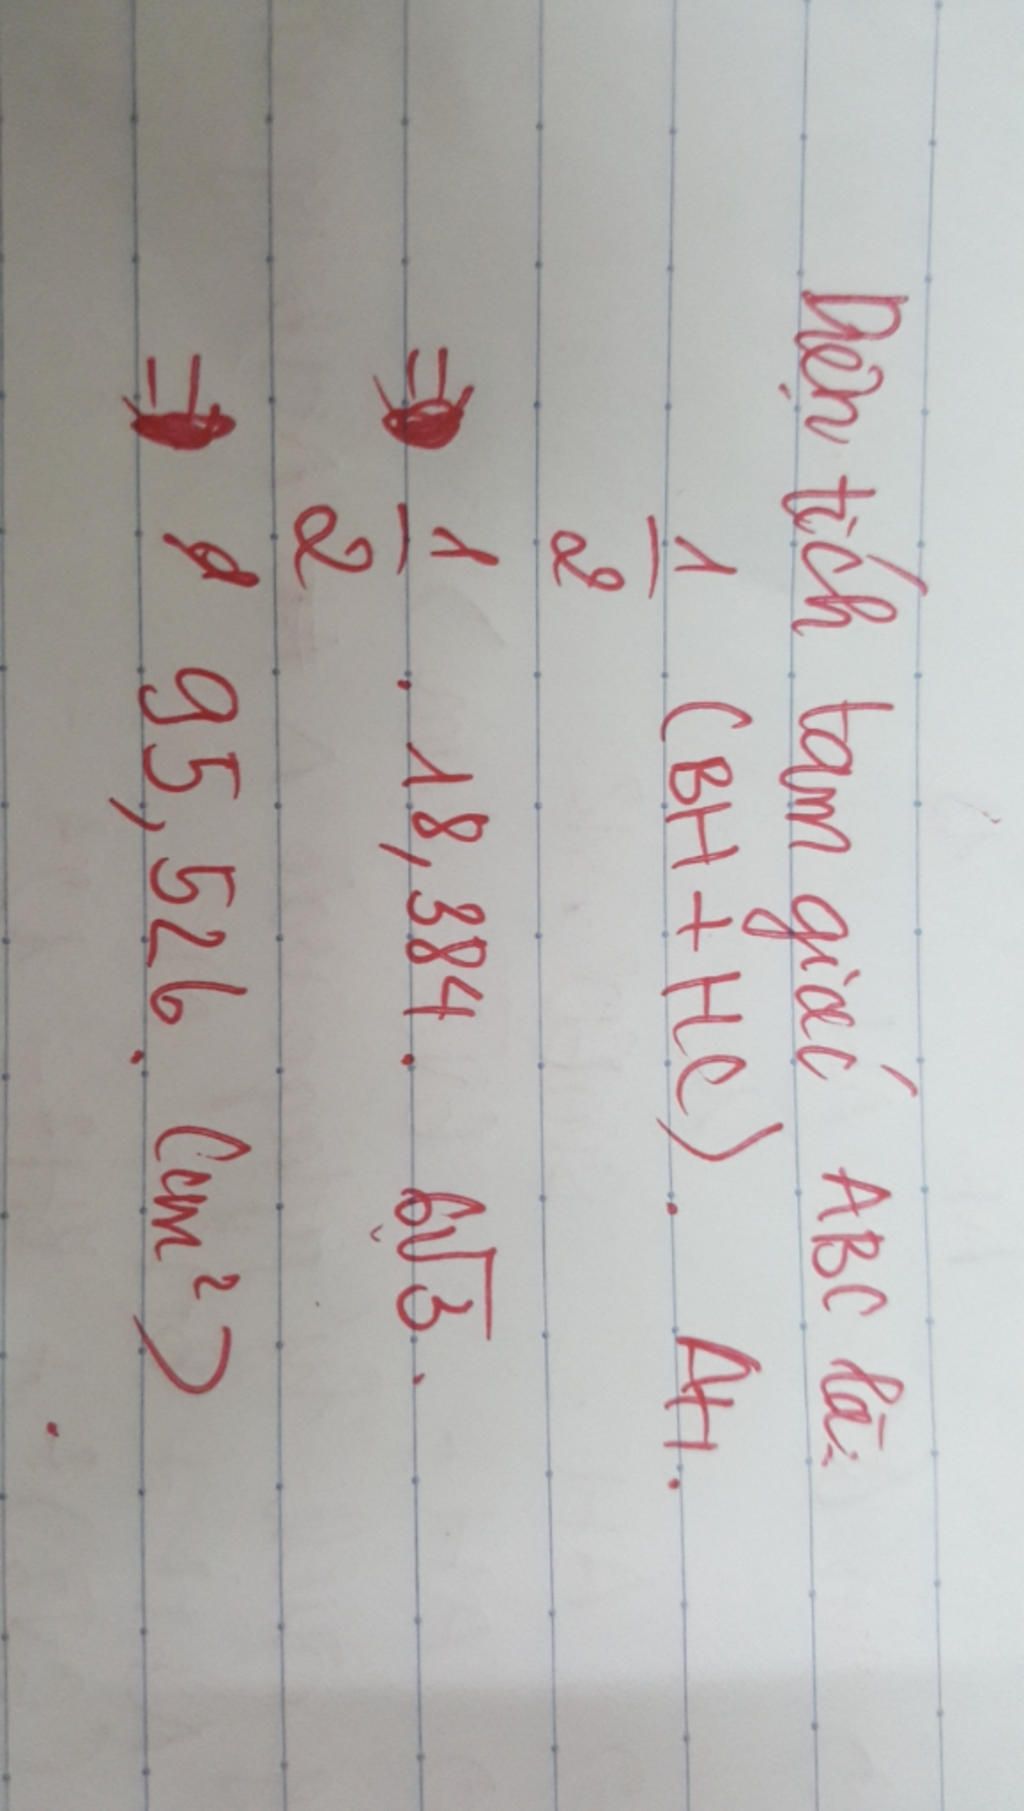 Diện tích tam giác ABC là:
1/2 (BH + HC) . AH.
= 1/2 . 18,384 . 6√3.
= 95,526 (cm²)